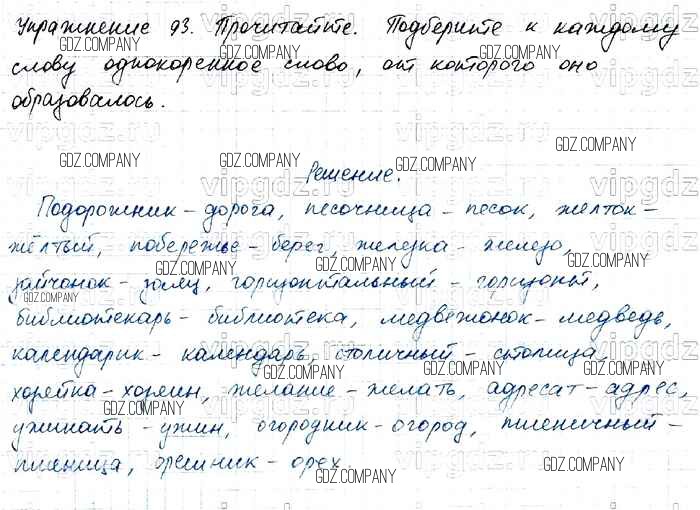 Упражнение 93. Прочитайте. Подберите к каждому
слову однокоренное слово, от которого оно
образовалось.
Решение.
Подорожник – дорога, песочница – песок, желток –
жёлтый, побережье – берег, железка – железо,
зайчонок – заяц, горизонтальный – горизонт,
библиотекарь – библиотека, медвежонок – медведь,
календарик – календарь, столичный – столица,
хозяйка – хозяин, желание – желать, адресат – адрес,
ужинать – ужин, огородник – огород, пшеничный –
пшеница, орешник – орех.